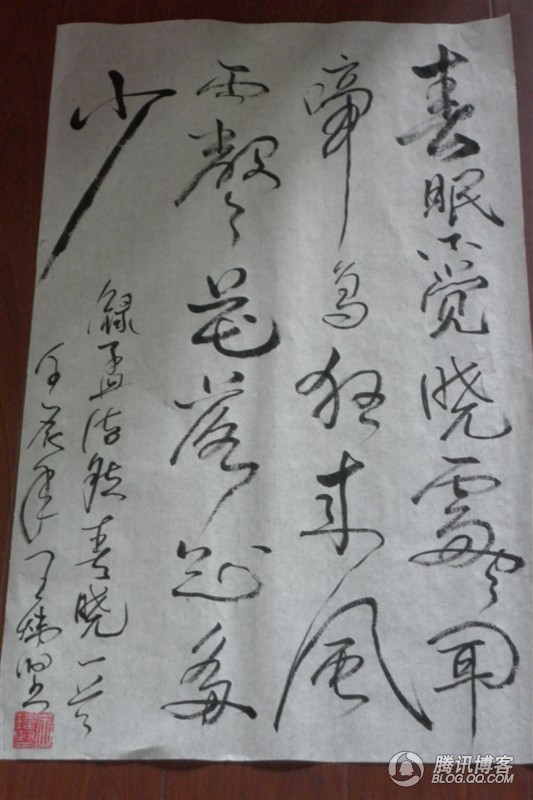 春眠不觉晓處々闻
啼鸟夜来风
雨聲々花落知多
少
録孟浩然春晓一首
壬辰年王
腾讯博客
BLOG.QQ.COM